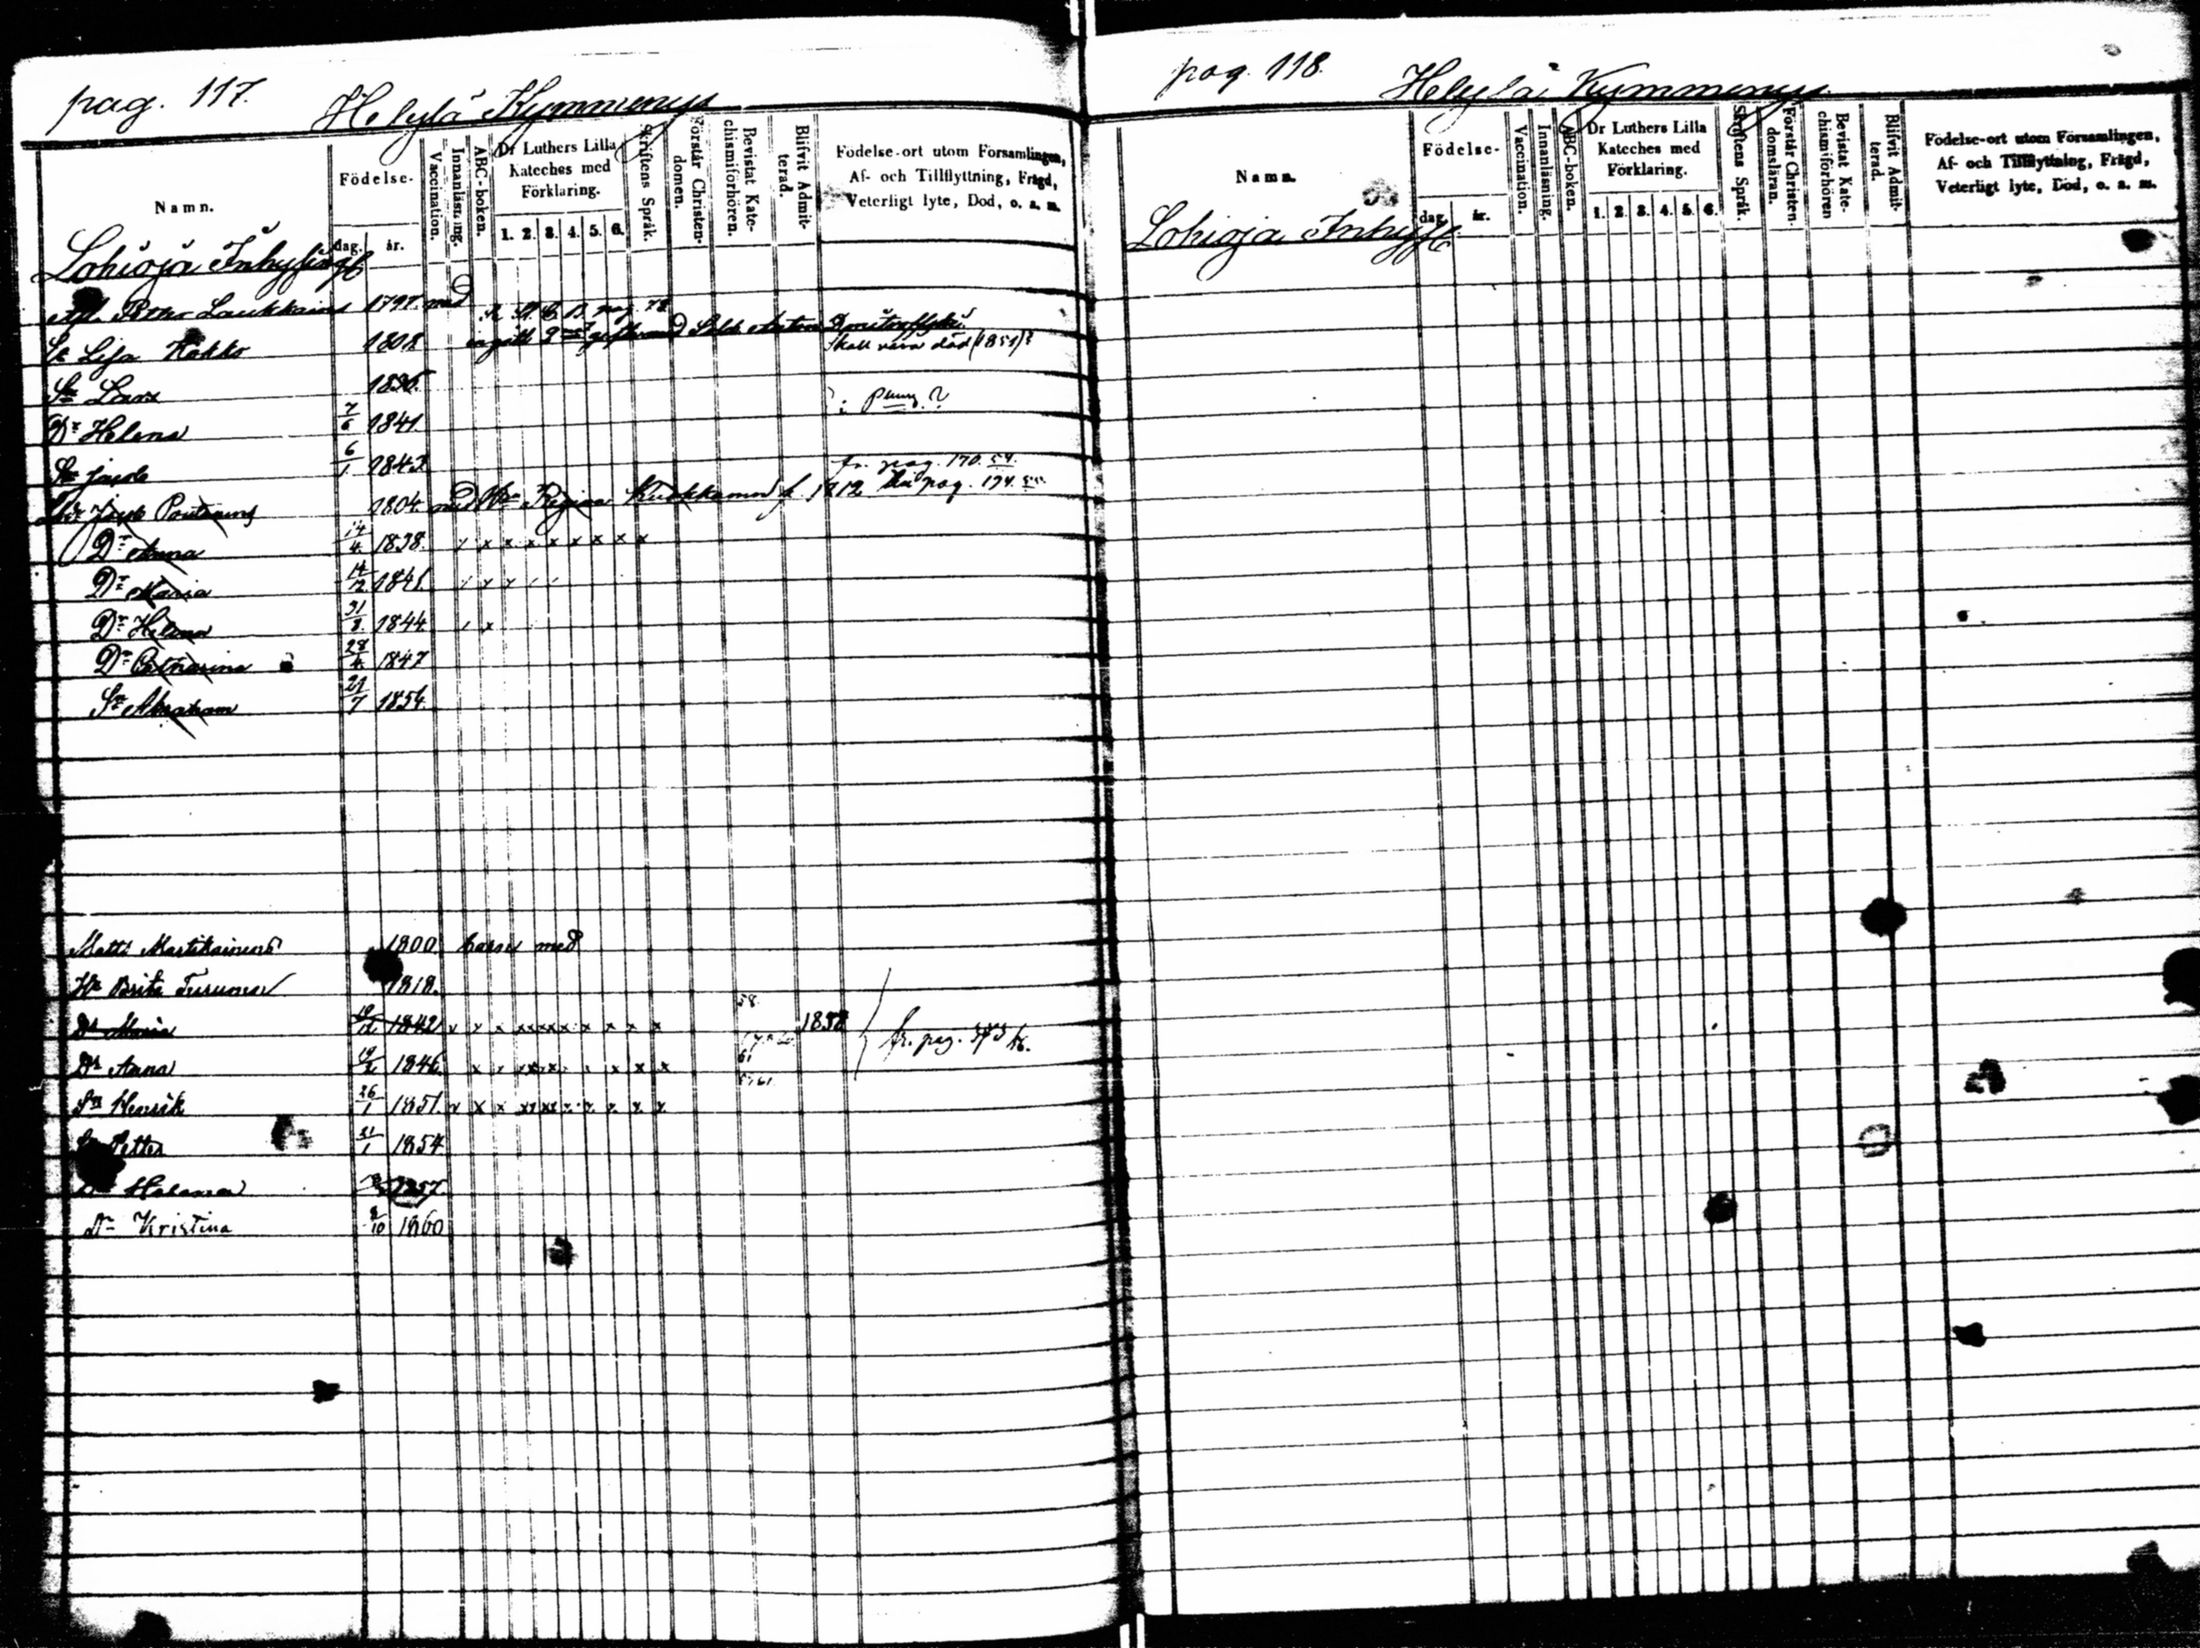 pag. 117.
Helylä Kymmenys
Namn.
Födelse-
dag.
år.
Vaccination.
Innanläsning.
ABC-boken.
Dr Luthers Lilla
Kateches med
Förklaring.
1. 2. 3. 4. 5. 6.
Skriftens Språk.
Förstår Christen-
domen.
Bevistat Kate-
chismiförhören.
Blifvit Admit-
terad.
Födelse-ort utom Församlingen,
Af- och Tillflyttning, Frägd,
Veterligt lyte, Död, o. s. m.
Lohioja
Petter Laukkainen 1797. med
pag. 78
Lisa Kokko 1808
Skall vara död (1851)?
Sn Lars 1836.
Dr Helena 7/6 1841
Sn Jacob 6/1 1843
fr. pag. 170. 54.
1804. Regina 1812 pag. 174.
Dr Anna 14/4 1838. x x x x x x x x
Dr Maria 14/12 1841.
Dr Helena 31/8 1844
Dr Catharina 28/4 1847
Sn Abraham 21/7 1854.
Matts Martikainen 1800. med
Hu Brita Turunen 1818.
58
Dr Maria 1842 x x x x x x x x x 1858
fr. pag. 373
61
Dr Anna 1846. x x x x x x
Sn Henrik 26/1 1851. x x x x x x x x x
Petter 31/1 1854
Helena 1857.
Dr Kristina 8/10 1860
pag. 118.
Helylä Kymmenys
Namn.
Födelse-
dag.
år.
Vaccination.
Innanläsning.
ABC-boken.
Dr Luthers Lilla
Kateches med
Förklaring.
1. 2. 3. 4. 5. 6.
Skriftens Språk.
Förstår Christen-
domsläran.
Bevistat Kate-
chismiförhören
Blifvit Admit-
terad.
Födelse-ort utom Församlingen,
Af- och Tillflyttning, Frägd,
Veterligt lyte, Död, o. s. m.
Lohioja